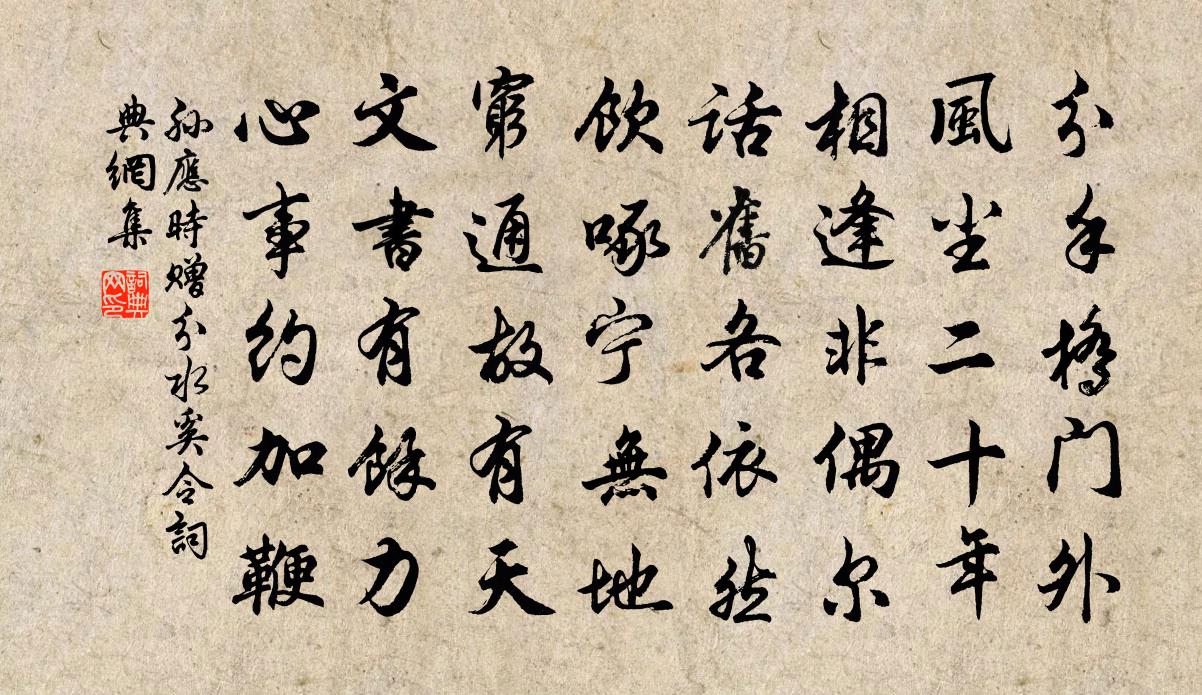 分手桥门外
風尘二十年
相逢非偶尔
話舊各依然
飲啄宁無地
窮通故有天
文書有餘力
心事約加鞭
孙應時赠分水奚令詞
典網集
詞典
网印